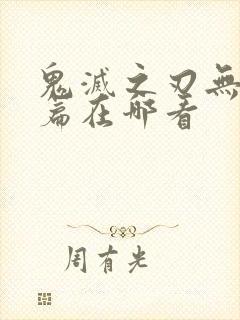 鬼滅之刃無
篇在哪看
周有光